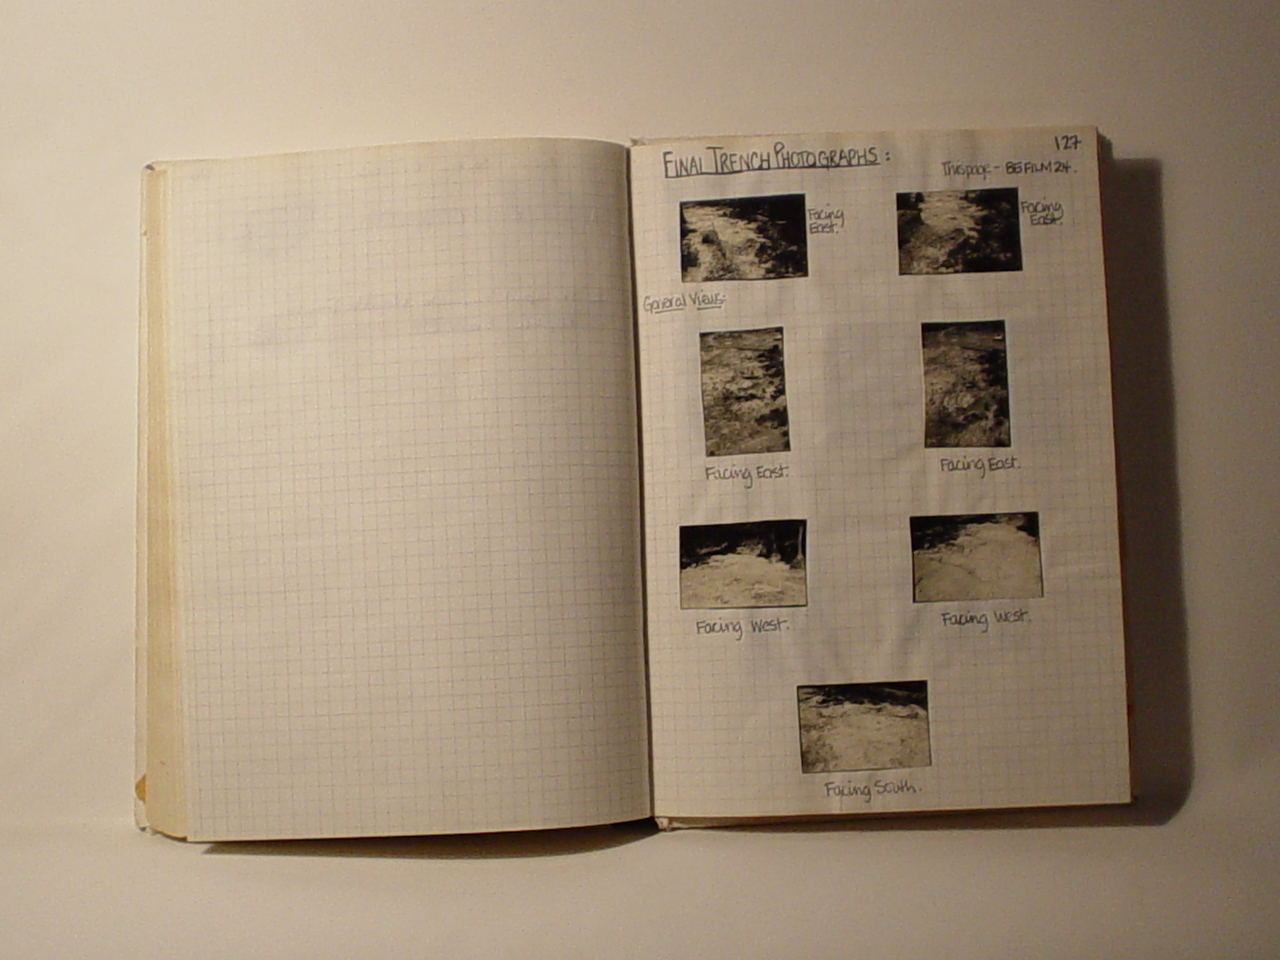 127
FINAL TRENCH PHOTOGRAPHS:
This page - BG FILM 24.
Facing
East.
Facing
East.
General Views:
Facing East.
Facing East.
Facing West.
Facing West.
Facing South.